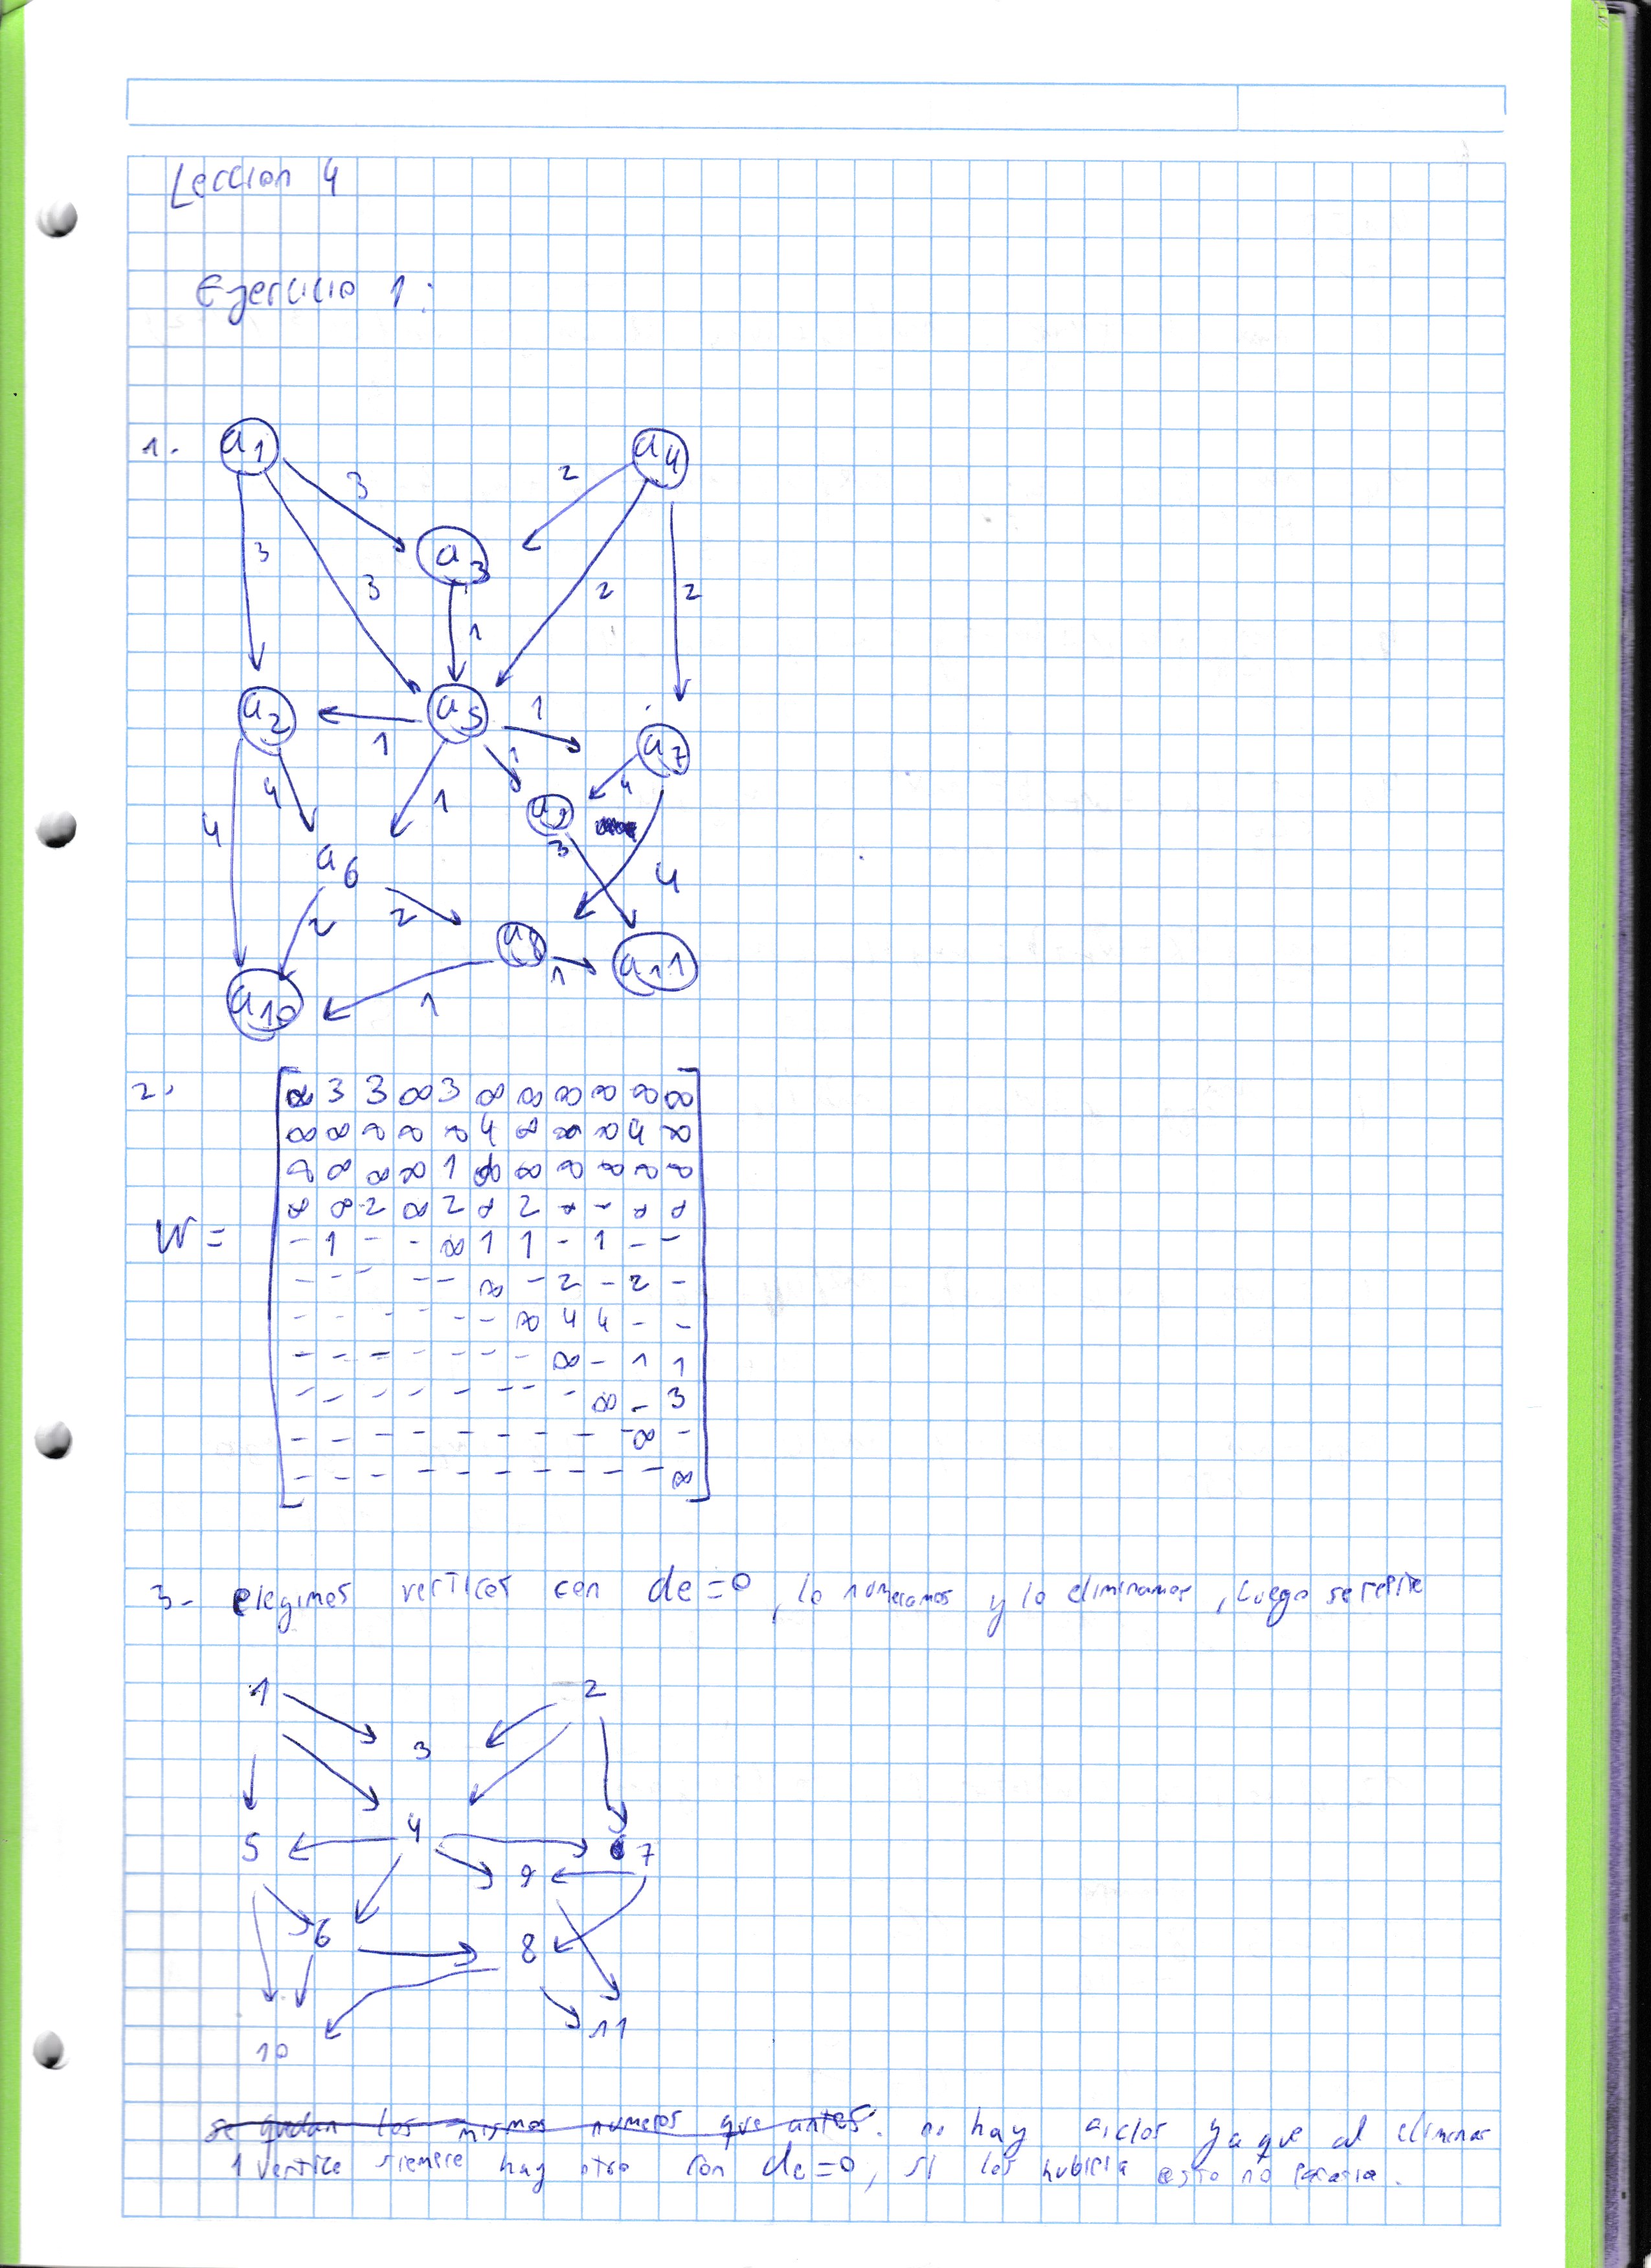 Leccion 4
Ejercicio 1:
1.
a1 a4
3 2
a3
3 3 2 2
1
a2 a5 a7
1 1 1
4 1 4
a9
4 3
a6 4
2 2
a8 a11
1
a10 1
2.
∞ 3 3 ∞ 3 ∞ ∞ ∞ ∞ ∞ ∞
∞ ∞ ∞ ∞ ∞ 4 ∞ ∞ ∞ 4 ∞
∞ ∞ ∞ ∞ 1 ∞ ∞ ∞ ∞ ∞ ∞
∞ ∞ 2 ∞ 2 ∞ 2 ∞ - ∞ ∞
W =
- 1 - - ∞ 1 1 - 1 - -
- - - - - ∞ - 2 - 2 -
- - - - - - ∞ 4 4 - -
- - - - - - - ∞ - 1 1
- - - - - - - - ∞ - 3
- - - - - - - - - ∞ -
- - - - - - - - - - ∞
3- elegimos vertices con de=0, lo numeramos y lo eliminamos, luego se repite
1 2
3
5 4 7
9
6 8
11
10
se quedan los mismos numeros que antes. no hay ciclos ya que al eliminar
1 vertice siempre hay otro con de=0, si los hubiera esto no pasaria.